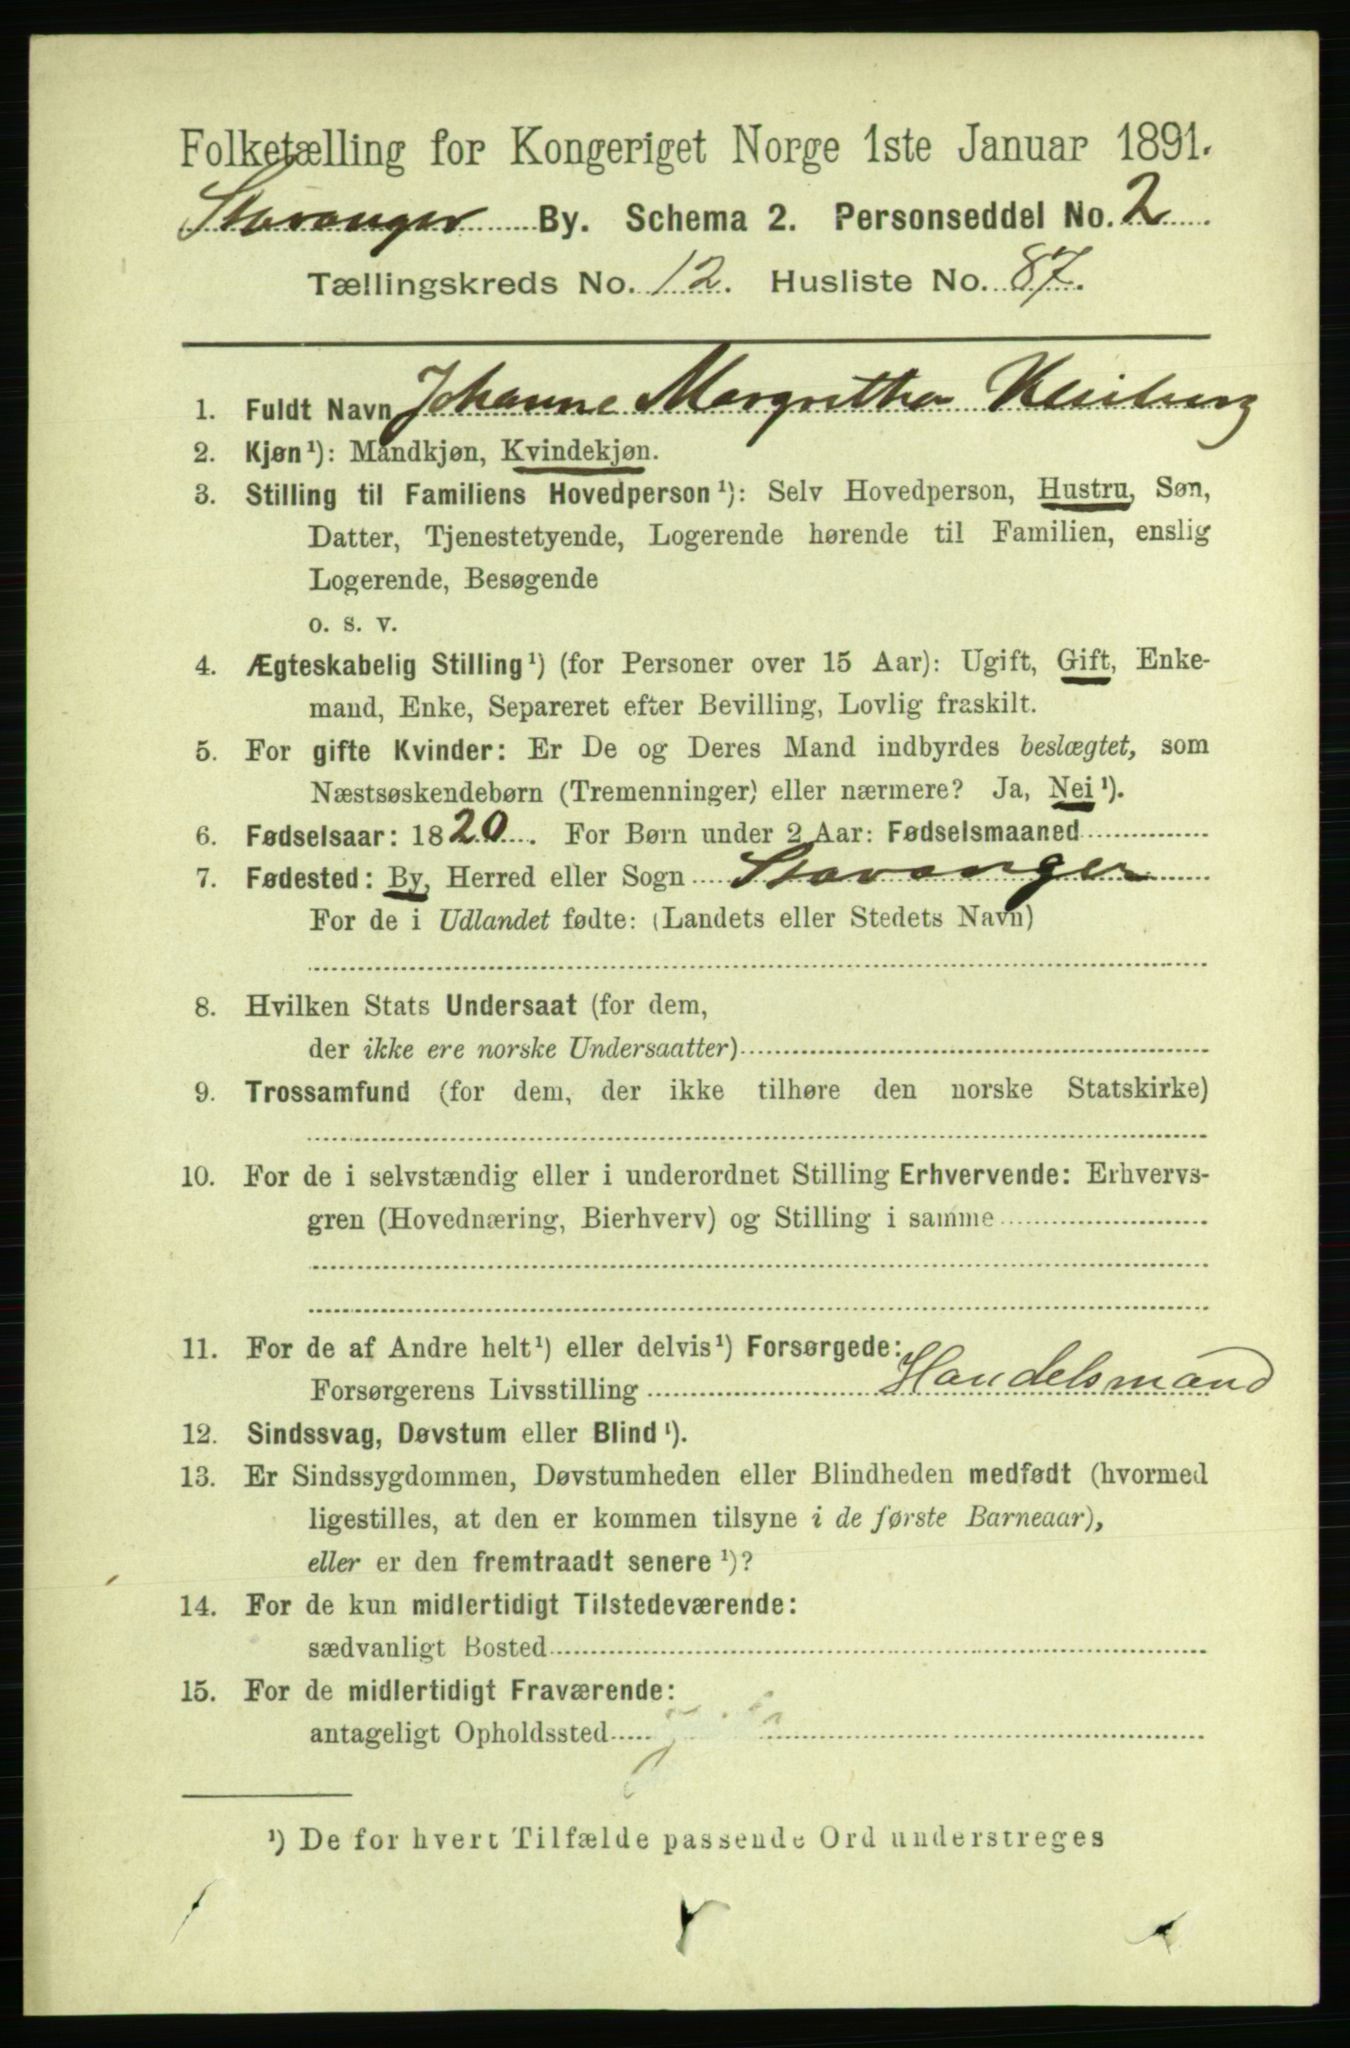 Folketælling for Kongeriget Norge 1ste Januar 1891.
Stavanger By. Schema 2. Personseddel No. 2
Tællingskreds No. 12. Husliste No. 87.
1. Fuldt Navn Johanne Margrethe
2. Kjøn¹): Mandkjøn, Kvindekjøn.
3. Stilling til Familiens Hovedperson¹): Selv Hovedperson, Hustru, Søn,
Datter, Tjenestetyende, Logerende hørende til Familien, enslig
Logerende, Besøgende
o. s. v.
4. Ægteskabelig Stilling¹) (for Personer over 15 Aar): Ugift, Gift, Enke-
mand, Enke, Separeret efter Bevilling, Lovlig fraskilt.
5. For gifte Kvinder: Er De og Deres Mand indbyrdes beslægtet, som
Næstsøskendebørn (Tremenninger) eller nærmere? Ja, Nei¹).
6. Fødselsaar: 1820. For Børn under 2 Aar: Fødselsmaaned
7. Fødested: By, Herred eller Sogn Stavanger
For de i Udlandet fødte: (Landets eller Stedets Navn)
8. Hvilken Stats Undersaat (for dem,
der ikke ere norske Undersaatter)
9. Trossamfund (for dem, der ikke tilhøre den norske Statskirke)
10. For de i selvstændig eller i underordnet Stilling Erhvervende: Erhvervs-
gren (Hovednæring, Bierhverv) og Stilling i samme
11. For de af Andre helt¹) eller delvis¹) Forsørgede:
Forsørgerens Livsstilling Handelsmand
12. Sindssvag, Døvstum eller Blind¹).
13. Er Sindssygdommen, Døvstumheden eller Blindheden medfødt (hvormed
ligestilles, at den er kommen tilsyne i de første Barneaar),
eller er den fremtraadt senere¹)?
14. For de kun midlertidigt Tilstedeværende:
sædvanligt Bosted
15. For de midlertidigt Fraværende:
antageligt Opholdssted
¹) De for hvert Tilfælde passende Ord understreges